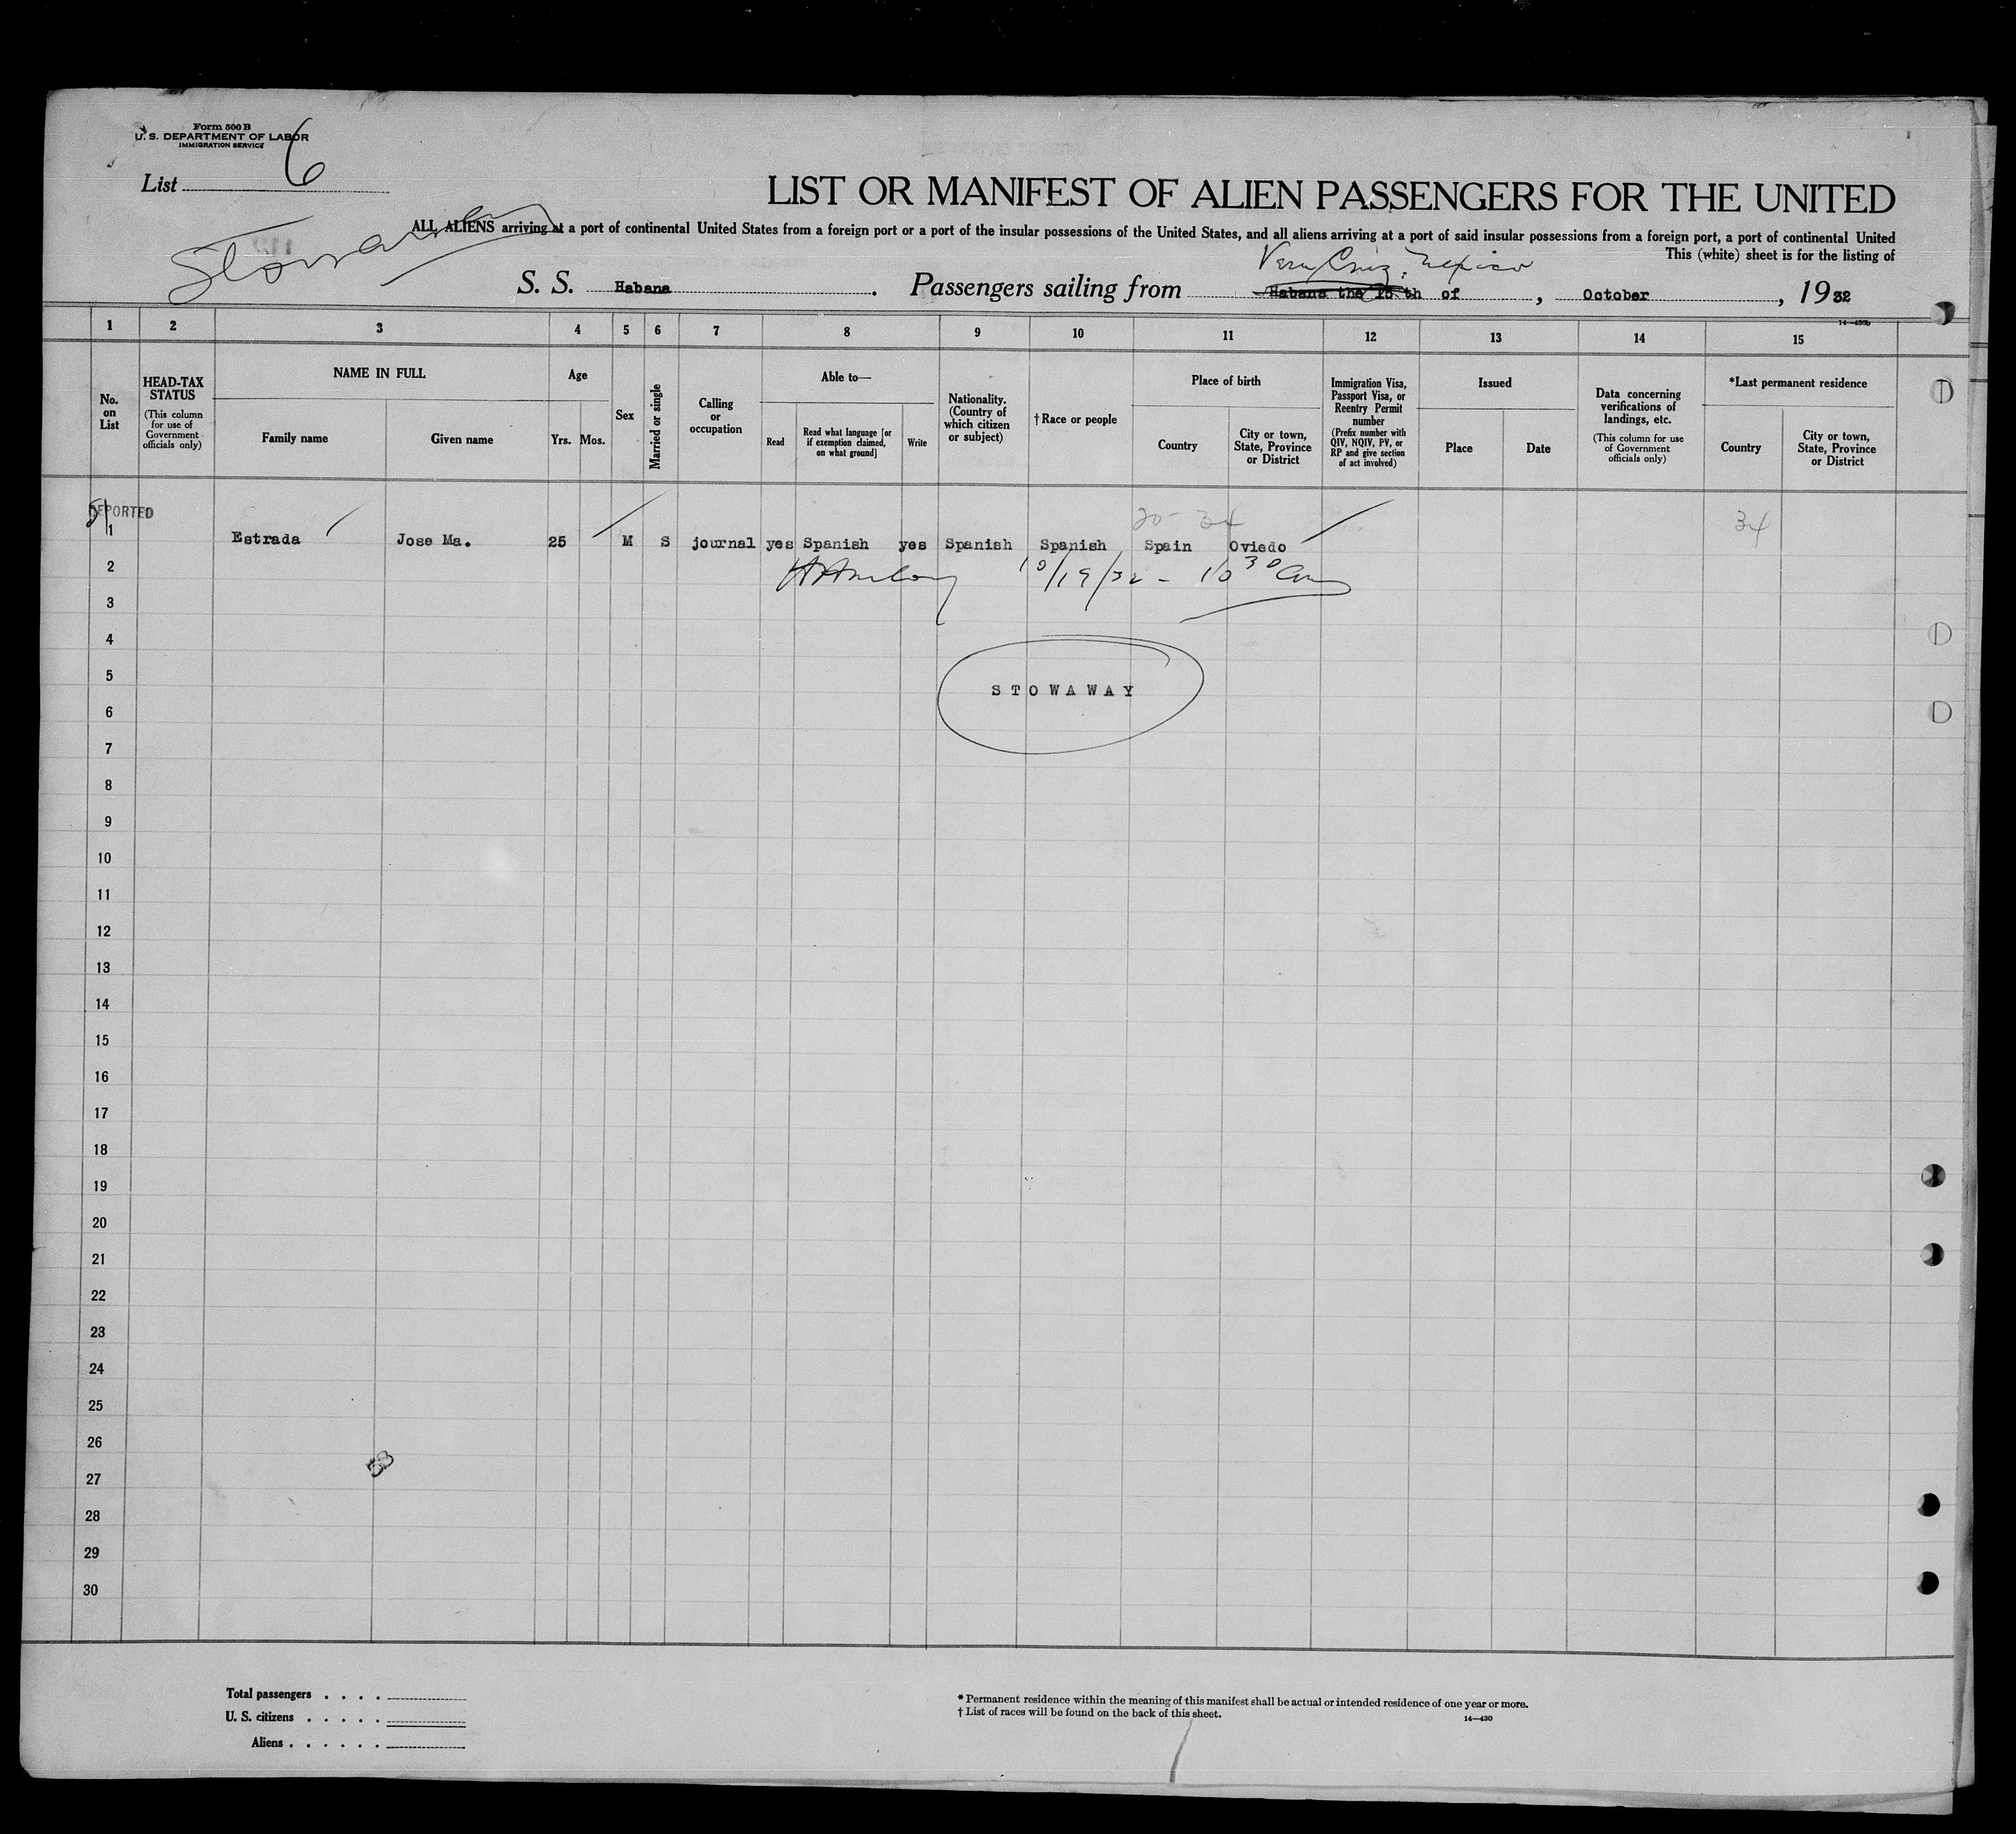 Form 500 B
U. S. DEPARTMENT OF LABOR
IMMIGRATION SERVICE
List 6
LIST OR MANIFEST OF ALIEN PASSENGERS FOR THE UNITED
Stowaway
ALL ALIENS arriving at a port of continental United States from a foreign port or a port of the insular possessions of the United States, and all aliens arriving at a port of said insular possessions from a foreign port, a port of continental United
This (white) sheet is for the listing of
Vera Cruz, Mexico
S. S. Habana . Passengers sailing from Habana the 15 th of , October , 19 32
14—430b
1 2 3 4 5 6 7 8 9 10 11 12 13 14 15
No. on List
HEAD-TAX STATUS (This column for use of Government officials only)
NAME IN FULL
Family name
Given name
Age
Yrs. Mos.
Sex
Married or single
Calling or occupation
Able to—
Read
Read what language [or if exemption claimed, on what ground]
Write
Nationality. (Country of which citizen or subject)
† Race or people
Place of birth
Country
City or town, State, Province or District
Immigration Visa, Passport Visa, or Reentry Permit number (Prefix number with QIV, NQIV, PV, or RP and give section of act involved)
Issued
Place
Date
Data concerning verifications of landings, etc. (This column for use of Government officials only)
*Last permanent residence
Country
City or town, State, Province or District
DEPORTED
20- 34
34
1 Estrada Jose Ma. 25 M S journal yes Spanish yes Spanish Spanish Spain Oviedo
2 10/19/32 - 10 30 am
3
4
5 STOWAWAY
6
7
8
9
10
11
12
13
14
15
16
17
18
19
20
21
22
23
24
25
26
27
28
29
30
Total passengers . . . .
U. S. citizens . . . . .
Aliens . . . . . .
* Permanent residence within the meaning of this manifest shall be actual or intended residence of one year or more.
† List of races will be found on the back of this sheet.
14—430